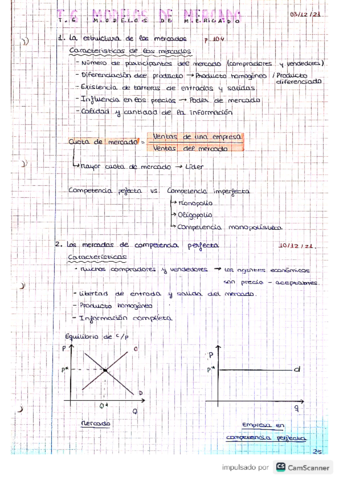 T.6. MODELOS DE MERCADO
03/12/21
1. La estructura de los mercados p. 104
Características de los mercados
- Número de participantes del mercado (compradores y vendedores)
- Diferenciación del producto → Producto homogéneo / Producto diferenciado
- Existencia de barreras de entradas y salidas
- Influencia en los precios → Poder de mercado
- Calidad y cantidad de la información
Cuota de mercado = Ventas de una empresa
Ventas del mercado
↳ Mayor cuota de mercado → Líder
Competencia perfecta vs. Competencia imperfecta
↳ Monopolio
↳ Oligopolio
↳ Competencia monopolística
2. Los mercados de competencia perfecta
10/12/21
Características
- Muchos compradores y vendedores → los agentes económicos
son precio - aceptantes
- Libertad de entrada y salida del mercado.
- Producto homogéneo
- Información completa
Equilibrio de c/p
P
P*
O
D
Q*
q
Mercado
P
P*
d
q
Empresa en
competencia perfecta
25
impulsado por CS CamScanner